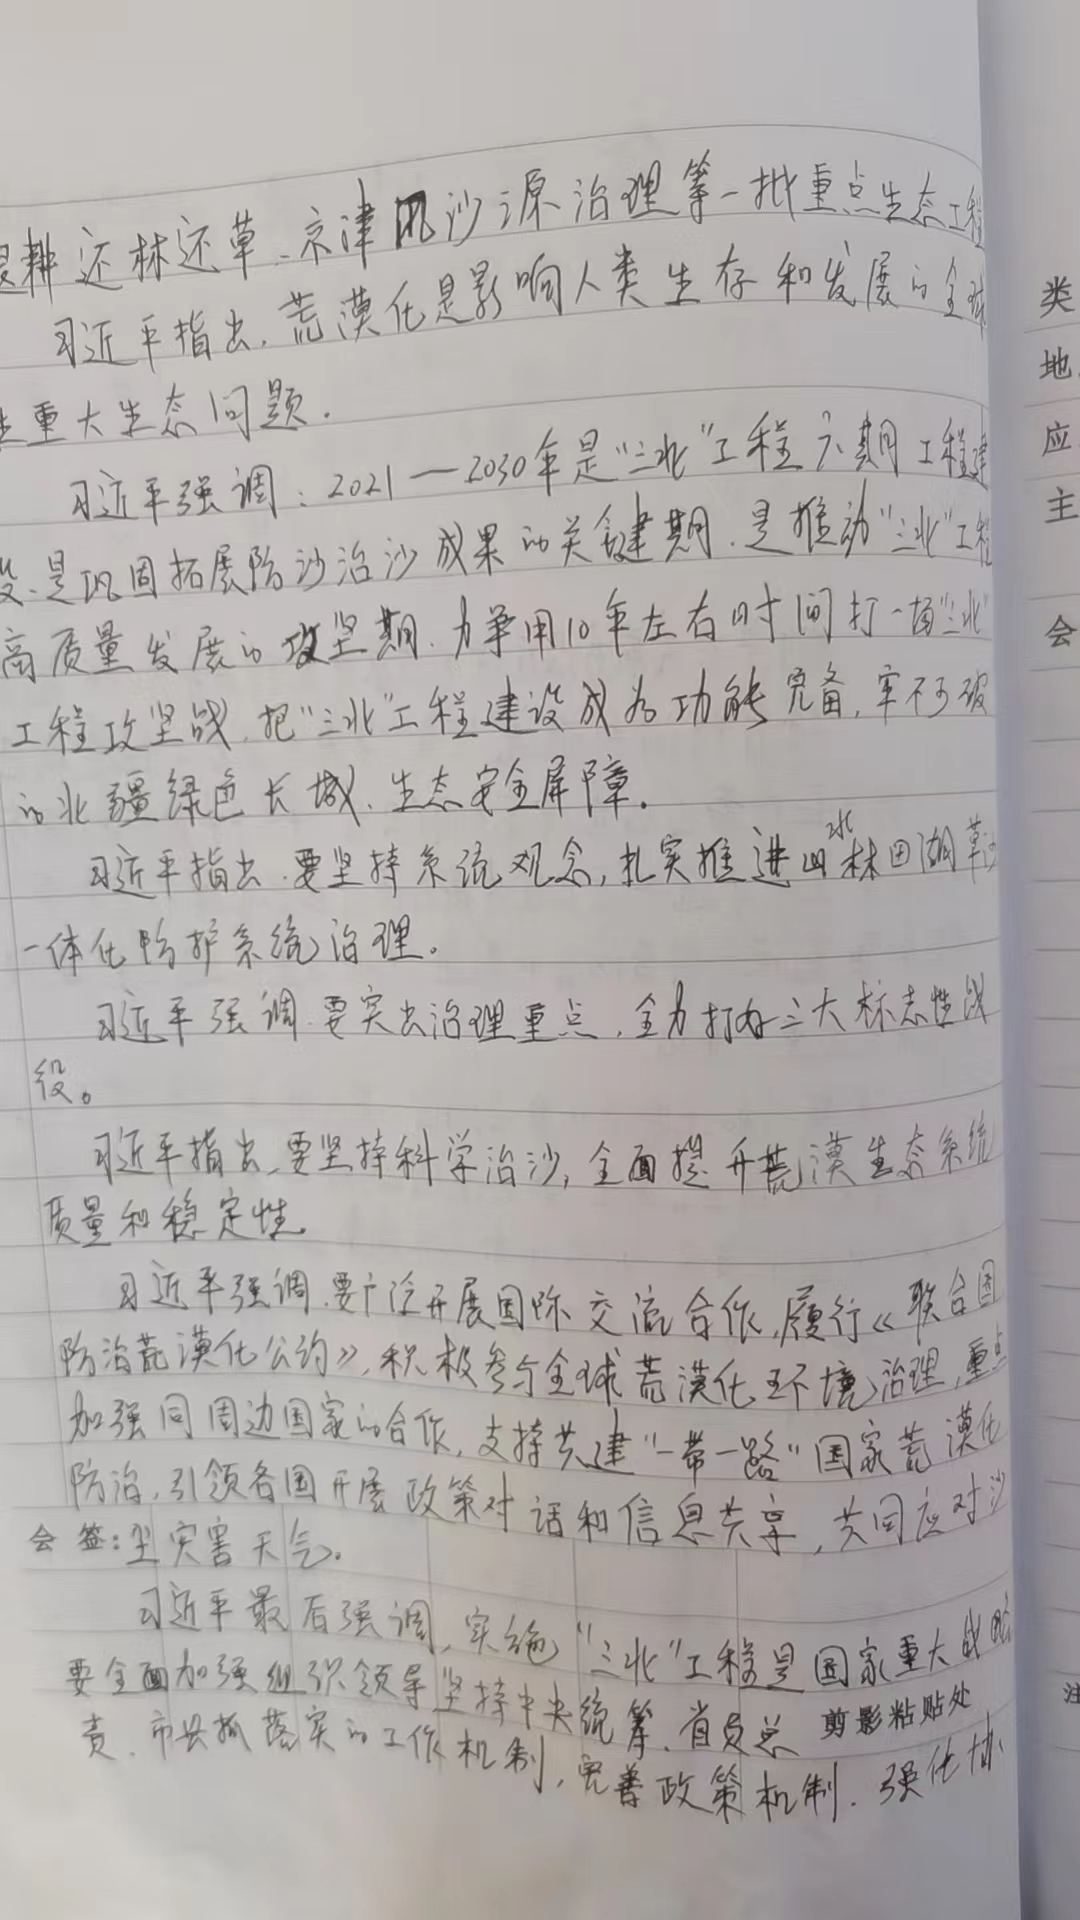 退耕还林还草、京津风沙源治理等一批重点生态工程
习近平指出，荒漠化是影响人类生存和发展的全球
重大生态问题.
习近平强调：2021—2030年是"三北"工程六期工程建
设、是巩固拓展防沙治沙成果的关键期、是推动"三北"工程
高质量发展的攻坚期、力争用10年左右时间打一场"三北"
工程攻坚战、把"三北"工程建设成为功能完备，牢不可破
的北疆绿色长城、生态安全屏障.
习近平指出、要坚持系统观念，扎实推进山水林田湖草沙
一体化防护系统治理.
习近平强调、要突出治理重点，全力打好三大标志性战
役。
习近平指出、要坚持科学治沙，全面提升荒漠生态系统
质量和稳定性.
习近平强调、要广泛开展国际交流合作，履行《联合国
防治荒漠化公约》，积极参与全球荒漠化环境治理，重点
加强同周边国家的合作，支持共建"一带一路"国家荒漠化
防治，引领各国开展政策对话和信息共享，共同应对沙
会 签：尘灾害天气.
习近平最后强调，实施"三北"工程是国家重大战略
要全面加强组织领导坚持中央统筹、省负总
剪影粘贴处
责、市县抓落实的工作机制，完善政策机制、强化协
类
地
应
主
会
注